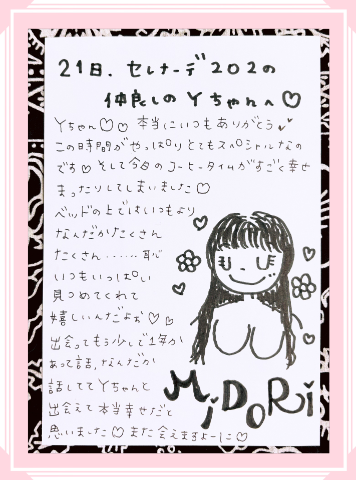 21日. セレナーデ202の
仲良しのYちゃんへ♡
Yちゃん♡♡ 本当にいつもありがとう
この時間がやっぱりとてもスペシャルなの
です♡ そして今日のコーヒータイムがすごく幸せ
まったりしてしまいました♡
ベッドの上ではいつもより
なんだかたくさん
たくさん……恥
いつもいっぱい
見つめてくれて
嬉しいんだよぉ♡♡
出会ってもう少しで1年か
あって話、なんだか
話しててYちゃんと
出会えて本当幸せだと
思いました♡ また会えますよーに♡
MiDoRi